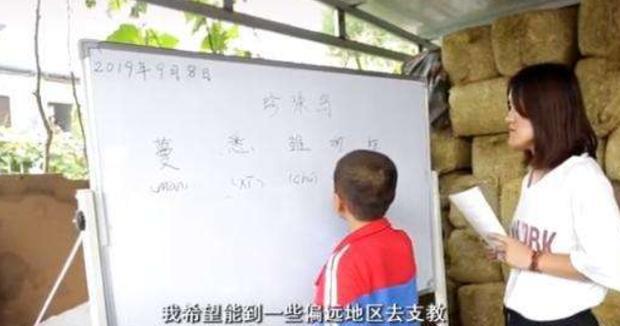 2019年9月8日
珍珠鸟
蔓 悉 雏
màn (xī) (chú)
WORK
我希望能到一些偏远地区去支教